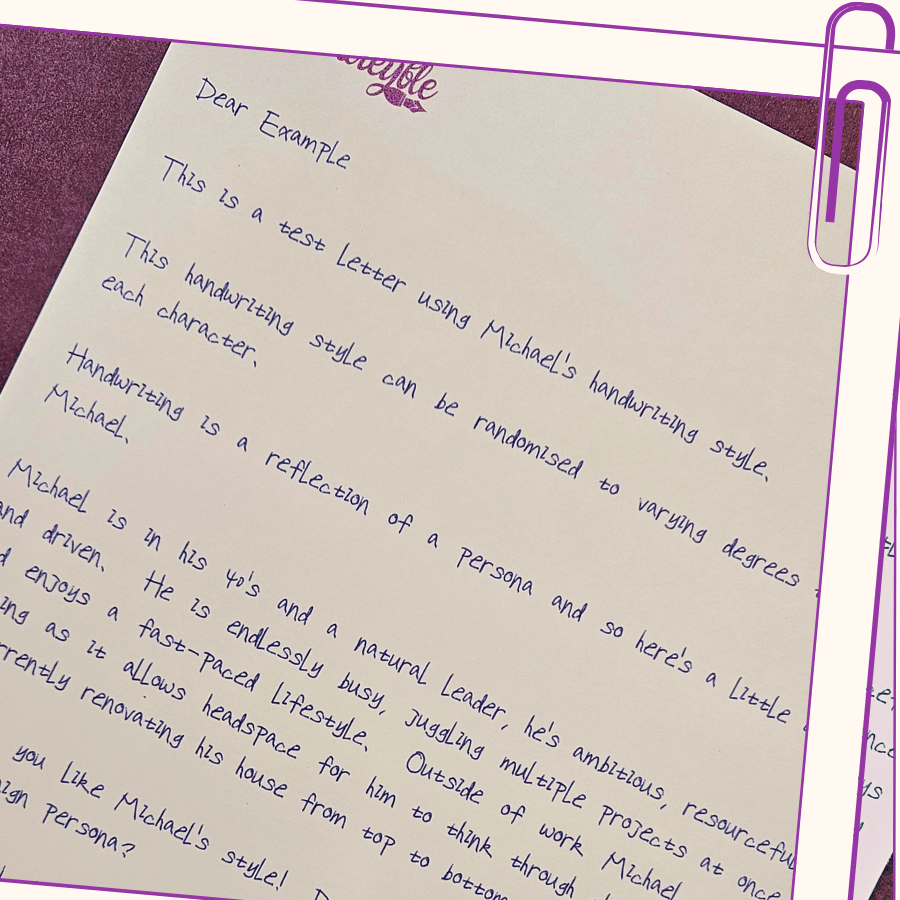 Dear Example
This is a test letter using Michael's handwriting style.
This handwriting style can be randomised to varying degrees
each character.
Handwriting is a reflection of a persona and so here's a little
Michael.
Michael is in his 40's and a natural leader, he's ambitious, resourceful
and driven. He is endlessly busy, juggling multiple projects at once
enjoys a fast-paced lifestyle. Outside of work Michael
as it allows headspace for him to think through
renovating his house from top to bottom
you like Michael's style!
persona?